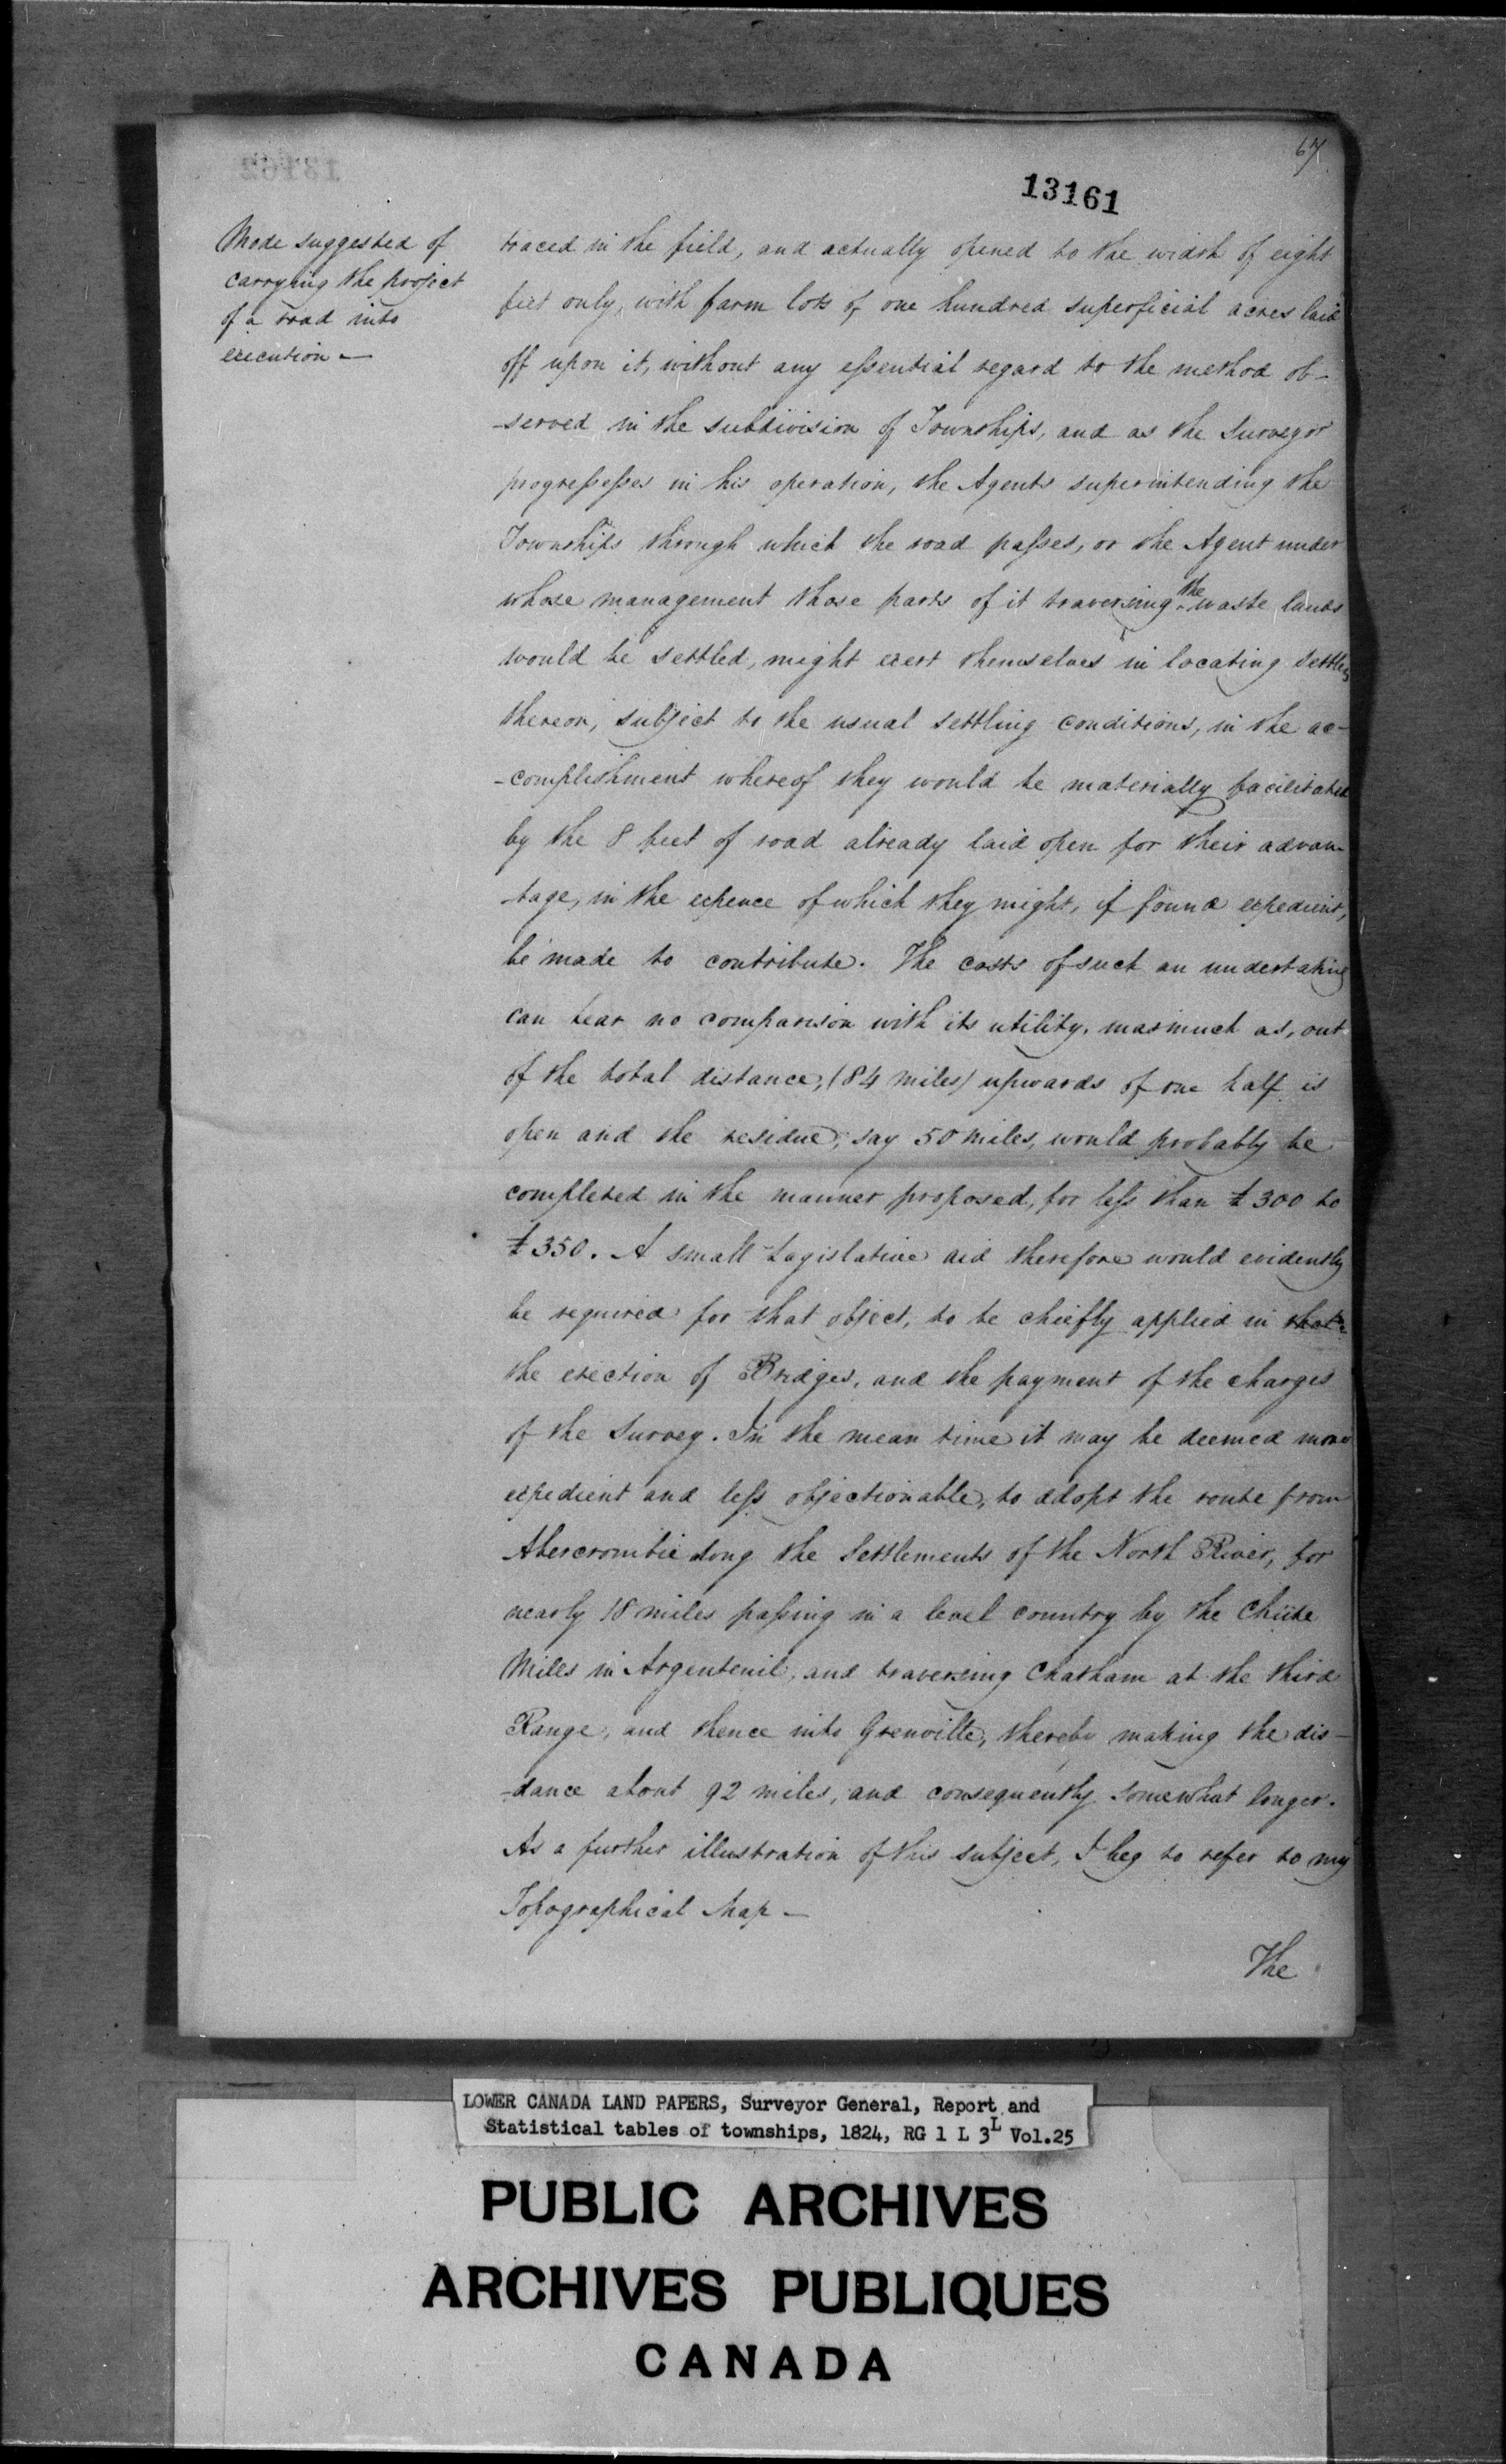 67
13161
Mode suggested of
carrying the project
of a road into
execution —
traced in the field, and actually opened to the width of eight
feet only, with farm lots of one hundred superficial acres laid
off upon it, without any essential regard to the method ob-
-served in the subdivision of Townships, and as the Surveyor
progressesses in his operation, the Agents superintending the
Townships through which the road passes, or the Agent under
whose management those parts of it traversing the waste lands
would be settled, might exert themselves in locating settlers
thereon, subject to the usual settling conditions, in the ac-
-complishment whereof they would be materially facilitated
by the 8 feet of road already laid open for their advan-
-tage, in the expence of which they might, if found expedient,
be made to contribute. The costs of such an undertaking
can bear no comparison with its utility, inasmuch as, out
of the total distance, (84 miles) upwards of one half is
open and the residue, say 50 miles, would probably be
completed in the manner proposed, for less than £300 to
£350. A small Legislative aid therefore would evidently
be required for that object, to be chiefly applied in that
the erection of Bridges, and the payment of the charges
of the Survey. In the mean time it may be deemed more
expedient and less objectionable, to adopt the route from
Abercrombie along the Settlements of the North River, for
nearly 18 miles passing in a level country by the Chûte
Mills in Argenteuil, and traversing Chatham at the third
Range, and thence into Grenville, thereby making the dis-
-tance about 92 miles, and consequently somewhat longer.
As a further illustration of this subject, I beg to refer to my
Topographical Map —
The
LOWER CANADA LAND PAPERS, Surveyor General, Report and
Statistical tables of townships, 1824, RG 1 L 3L Vol.25
PUBLIC ARCHIVES
ARCHIVES PUBLIQUES
CANADA